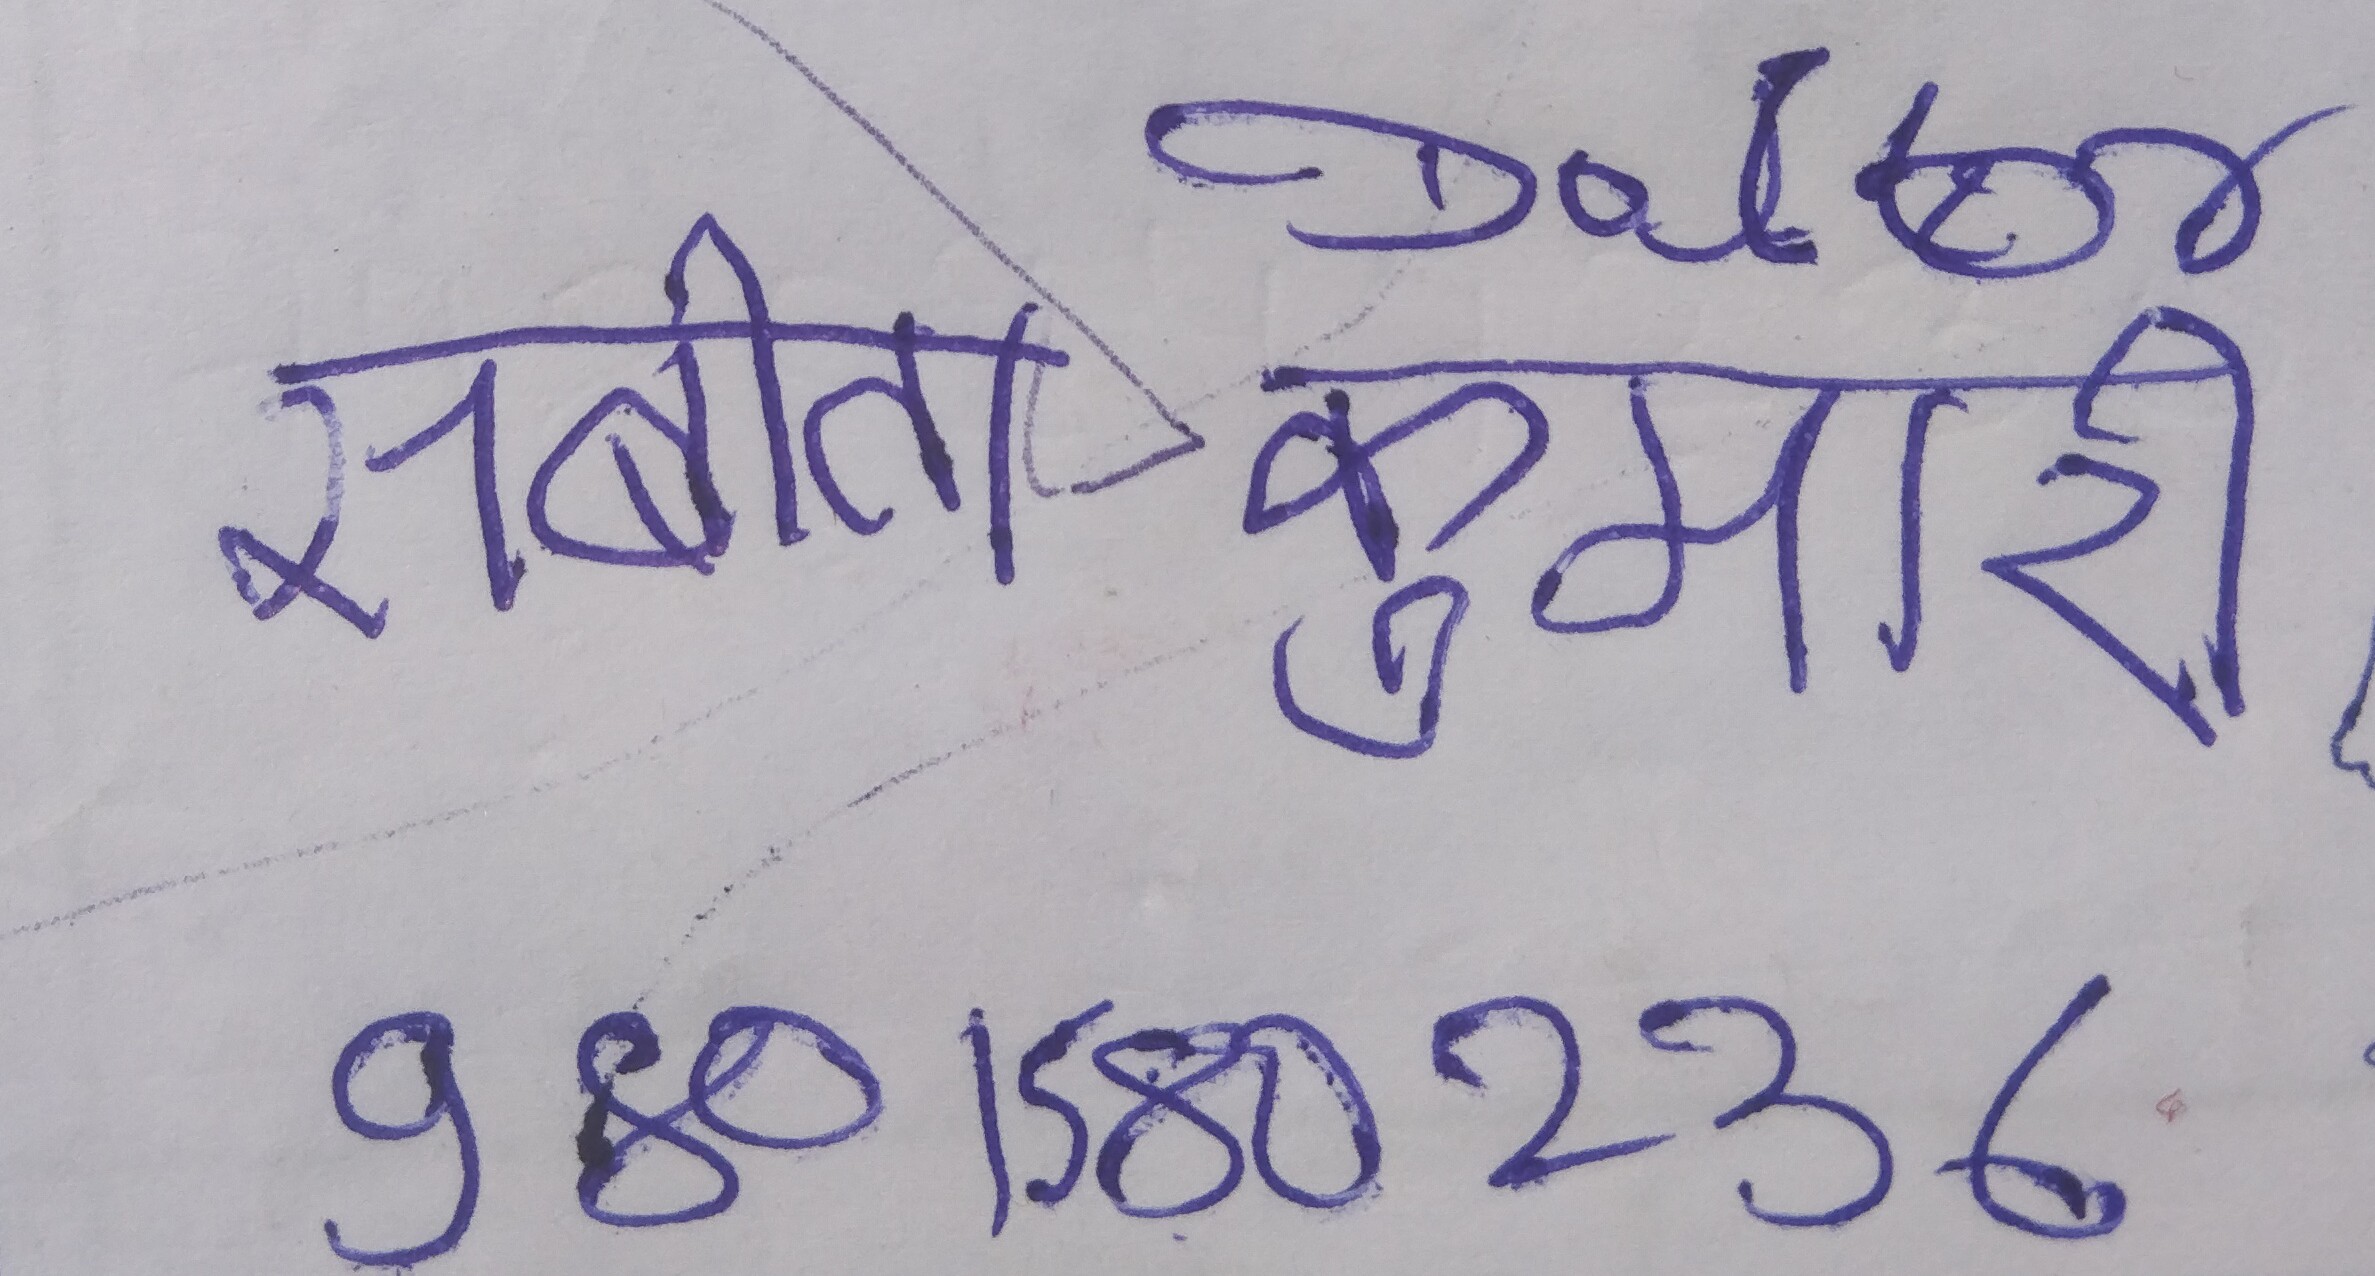 Daltor
सबीता कुमारी
9801580236